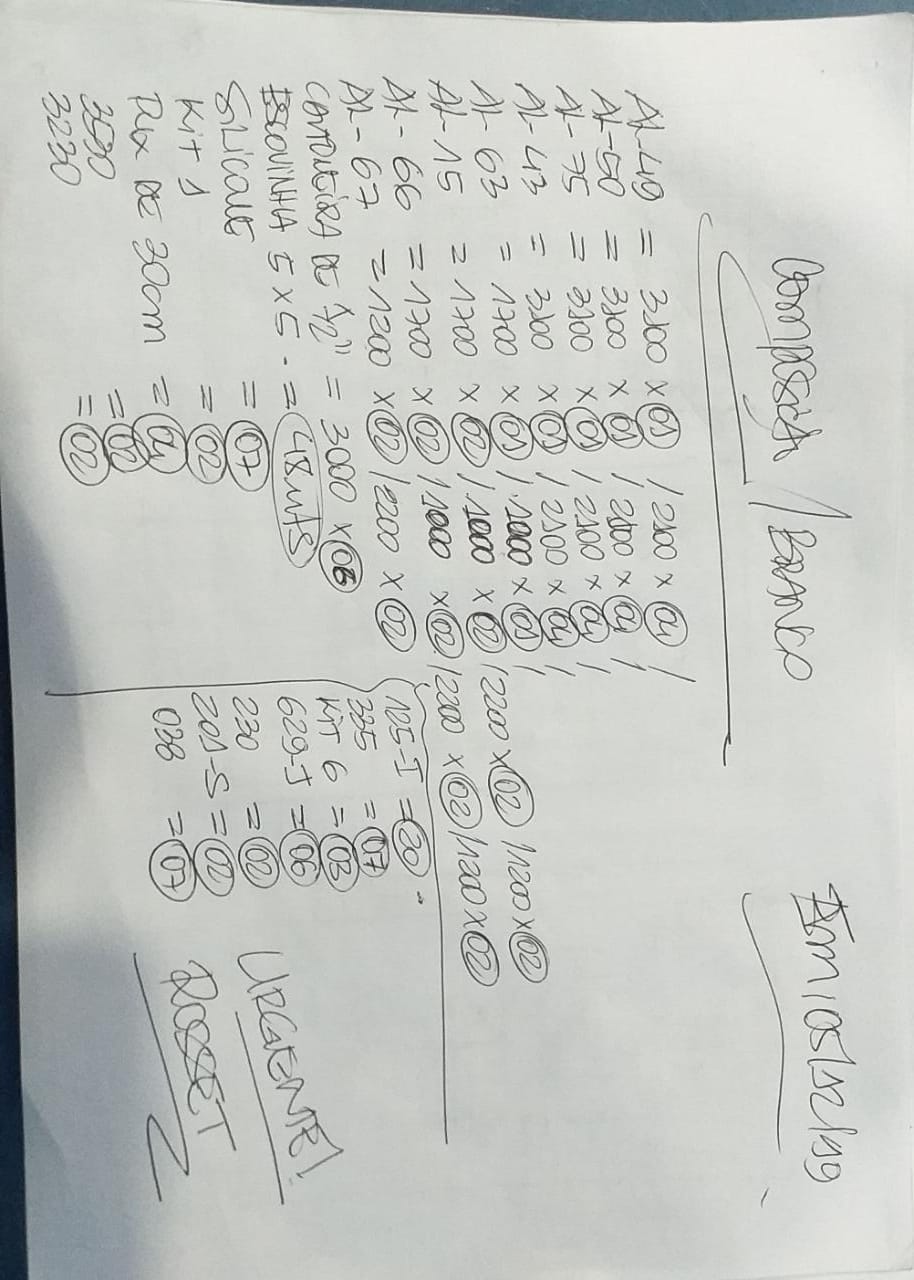 Em 10/12/19
AL-49 = 3100 x 01 / 2100 x 01 /
AL-50 = 3100 x 01 / 2100 x 01 /
AL-75 = 3100 x 01 / 2100 x 01 /
AL-43 = 3100 x 01 / 2100 x 01 /
AL-63 = 1700 x 01 / 1000 x 01 / 2200 x 02 / 1200 x 02
AL-15 = 1700 x 02 / 1000 x 02
AL-66 = 1700 x 02 / 1000 x 02 / 2200 x 02 / 1200 x 02
AL-67 = 1200 x 02 / 2200 x 02
CANTONEIRA DE 1/2" = 3000 x 08
ESCOVINHA 5x5 = 48 mts
SILICONE = 07
Kit 1 = 02
FIX DE 30cm = 01
3530 = 02
3230 = 02
125-I = 20
335 = 07
Kit 6 = 03
629-I = 06
230 = 02
201-S = 02
038 = 07
URGENTE!
ROSSET